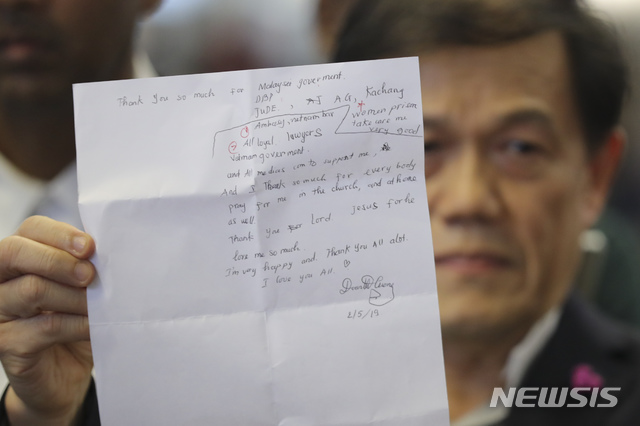 Thank you so much for Malaysian goverment.
DPP
JUDE, A.G, Kachang
women prison
take care me
very good
① Ambassy,
② All legal lawyers
government.
and All medias com to support me,
And I Thank so much for every body
pray for me in the church, and at home
as well
Thank you Lord Jesus for he
love me so much.
I'm very happy and. Thank you All alot.
I love you All. ♡
/5/19
NEWSIS